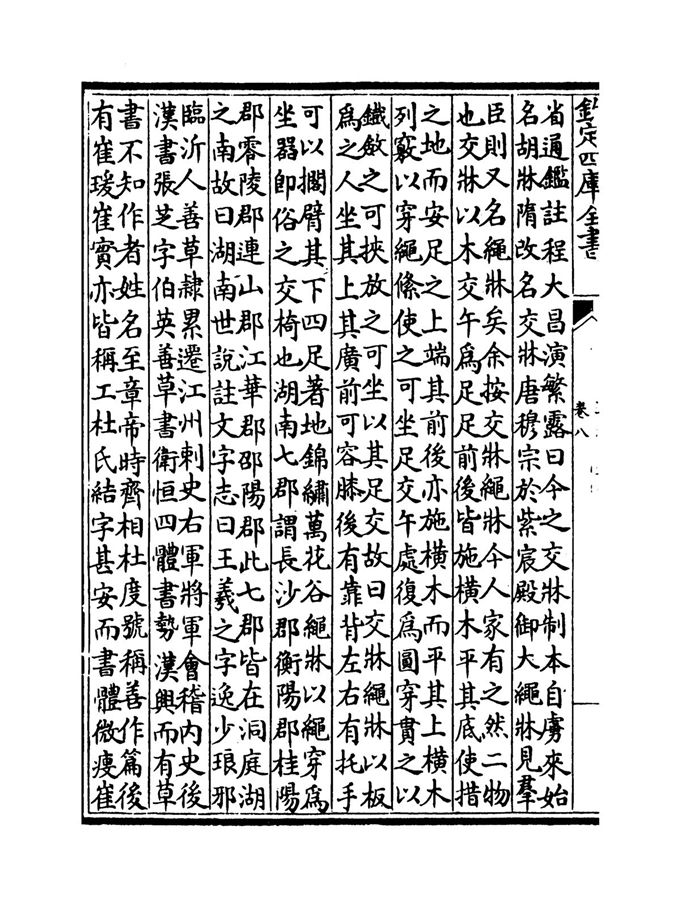 欽定四庫全書
卷八
省通鑑註程大昌演繁露曰今之交牀制本自虜來始
名胡牀隋改名交牀唐穆宗於紫宸殿御大繩牀見羣
臣則又名繩牀矣余按交牀繩牀今人家有之然二物
也交牀以木交午為足足前後皆施横木平其底使措
之地而安足之上端其前後亦施横木而平其上横木
列竅以穿繩絛使之可坐足交午處復為圓穿貫之以
鐵歛之可挾放之可坐以其足交故曰交牀繩牀以板
為之人坐其上其廣前可容膝後有靠背左右有托手
可以擱臂其下四足著地錦繡萬花谷繩牀以繩穿為
坐器即俗之交椅也湖南七郡謂長沙郡衡陽郡桂陽
郡零陵郡連山郡江華郡邵陽郡此七郡皆在洞庭湖
之南故曰湖南世說註文字志曰王羲之字逸少琅邪
臨沂人善草隸累遷江州刺史右軍將軍會稽内史後
漢書張芝字伯英善草書衛恒四體書勢漢興而有草
書不知作者姓名至章帝時齊相杜度號稱善作篇後
有崔瑗崔實亦皆稱工杜氏結字甚安而書體微瘦崔